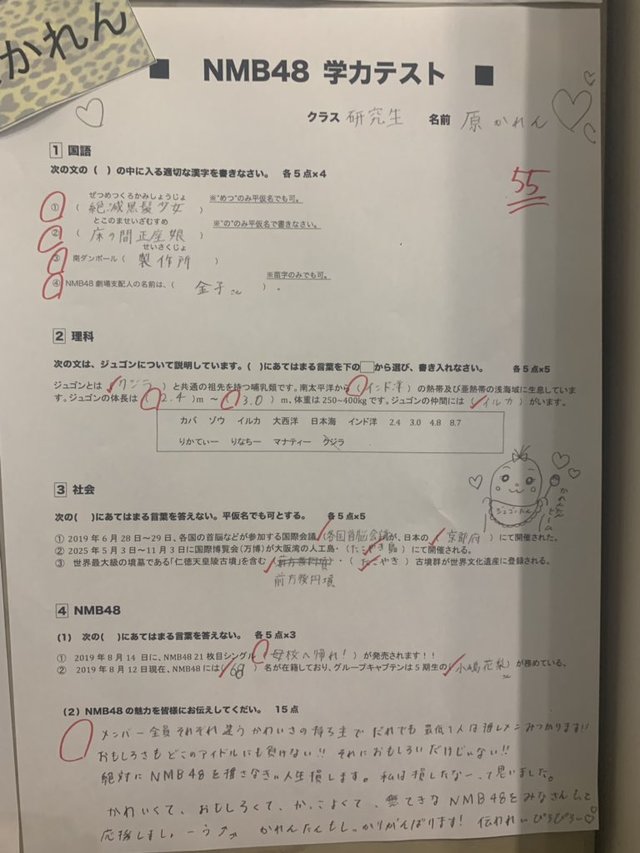 かれん
■ NMB48 学力テスト ■
クラス 研究生 名前 原 かれん
55
1 国語
次の文の（ ）の中に入る適切な漢字を書きなさい。 各5点×4
ぜつめつくろかみしょうじょ ※"めつ"のみ平仮名でも可。
①（ 絶滅黒髪少女 ）
とこのませいざむすめ ※"の"のみ平仮名で書きなさい。
②（ 床の間正座娘 ）
せいさくじょ
③ 南ダンボール（ 製作所 ）
※苗字のみでも可。
④ NMB48 劇場支配人の名前は、（ 金子さん ）．
2 理科
次の文は、ジュゴンについて説明しています。（ ）にあてはまる言葉を下の□から選び、書き入れなさい。 各5点×5
ジュゴンとは（クジラ）と共通の祖先を持つ哺乳類です。南太平洋から（インド洋）の熱帯及び亜熱帯の浅海域に生息していま
す。ジュゴンの体長は（2.4）m～（3.0）m、体重は250~400kgです。ジュゴンの仲間には（イルカ）がいます。
カバ ゾウ イルカ 大西洋 日本海 インド洋 2.4 3.0 4.8 8.7
りかてぃー りなちー マナティー クジラ
ジュゴンたん
3 社会
次の（ ）にあてはまる言葉を答えない。平仮名でも可とする。 各5点×5
① 2019年6月28日～29日、各国の首脳などが参加する国際会議（各国首脳会議）が、日本の（京都府）にて開催された。
② 2025年5月3日～11月3日に国際博覧会（万博）が大阪湾の人工島・（たこやき島）にて開催される。
③ 世界最大級の墳墓である「仁徳天皇陵古墳」を含む（前方後円墳）・（たこやき）古墳群が世界文化遺産に登録される。
前方後円墳
4 NMB48
(1) 次の（ ）にあてはまる言葉を答えない。 各5点×3
① 2019年8月14日に、NMB48 21枚目シングル（母校へ帰れ！）が発売されます！！
② 2019年8月12日現在、NMB48には（68）名が在籍しており、グループキャプテンは5期生の（小嶋花梨さん）が務めている。
(2) NMB48の魅力を皆様にお伝えしてくだい。 15点
メンバー全員それぞれ違うかわいさの持ち主でだれでも最低1人は推しメンみつかりますに
おもしろさもどこのアイドルにも負けない!! それにおもしろいだけじゃない!!
絶対にNMB48を推さなきゃ人生損します。私は損したなーって思いました。
かわいくて、おもしろくて、かっこよくて、無てきなNMB48をみなさん
応援しましょーうっ かれんたんもしっかりがんばります! 伝われーびびびびー♡